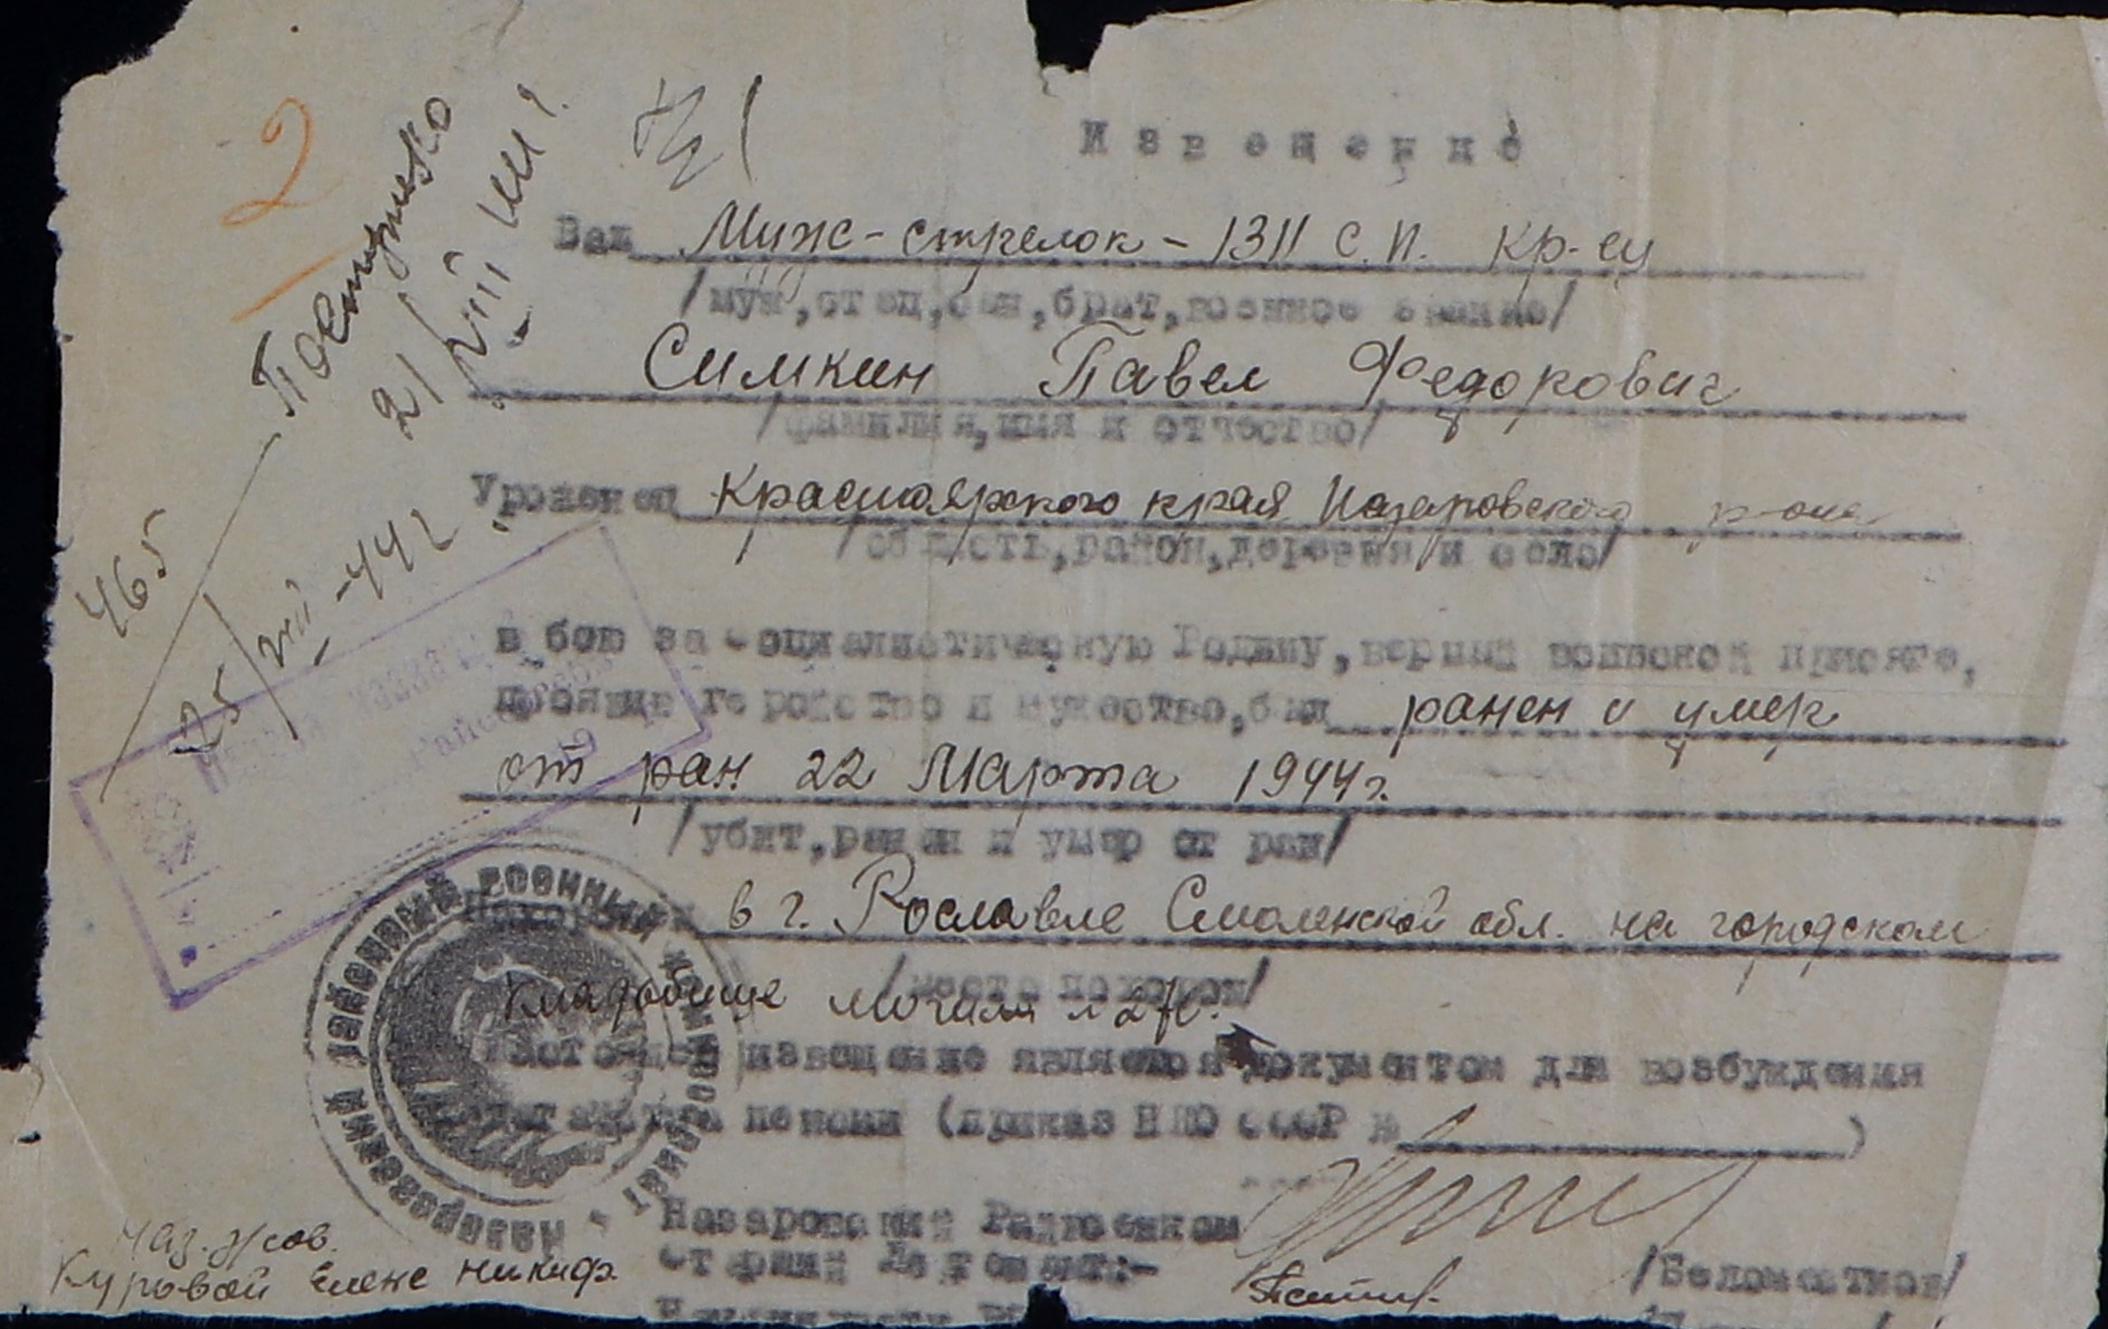 2
465
21/VIII 44 г.
25/VIII-44 г
Извещение
Ваш Муж-стрелок-1311 с.п. кр-ец
/муж, отец, сын, брат, военное звание/
Симкин Павел Федорович
/фамилия, имя и отчество/
Уроженец Красноярского края Назаровского р-она
/область, район, деревня и село/
в бою за социалистическую Родину, верный воинской присяге,
проявив геройство и мужество, был ранен и умер
от ран 22 Марта 1944 г.
/убит, ранен и умер от ран/
Похоронен в г. Рославле Смоленской обл. на городском
/место похорон/
кладобище могила
Настоящее извещение является документом для возбуждения
ходатайства о пенсии (приказ НКО СССР № )
Назаровский Райвоенком
Старший Лейтенант:-
Назаровский районный военный комиссариат
Куровой Елене Никиф.